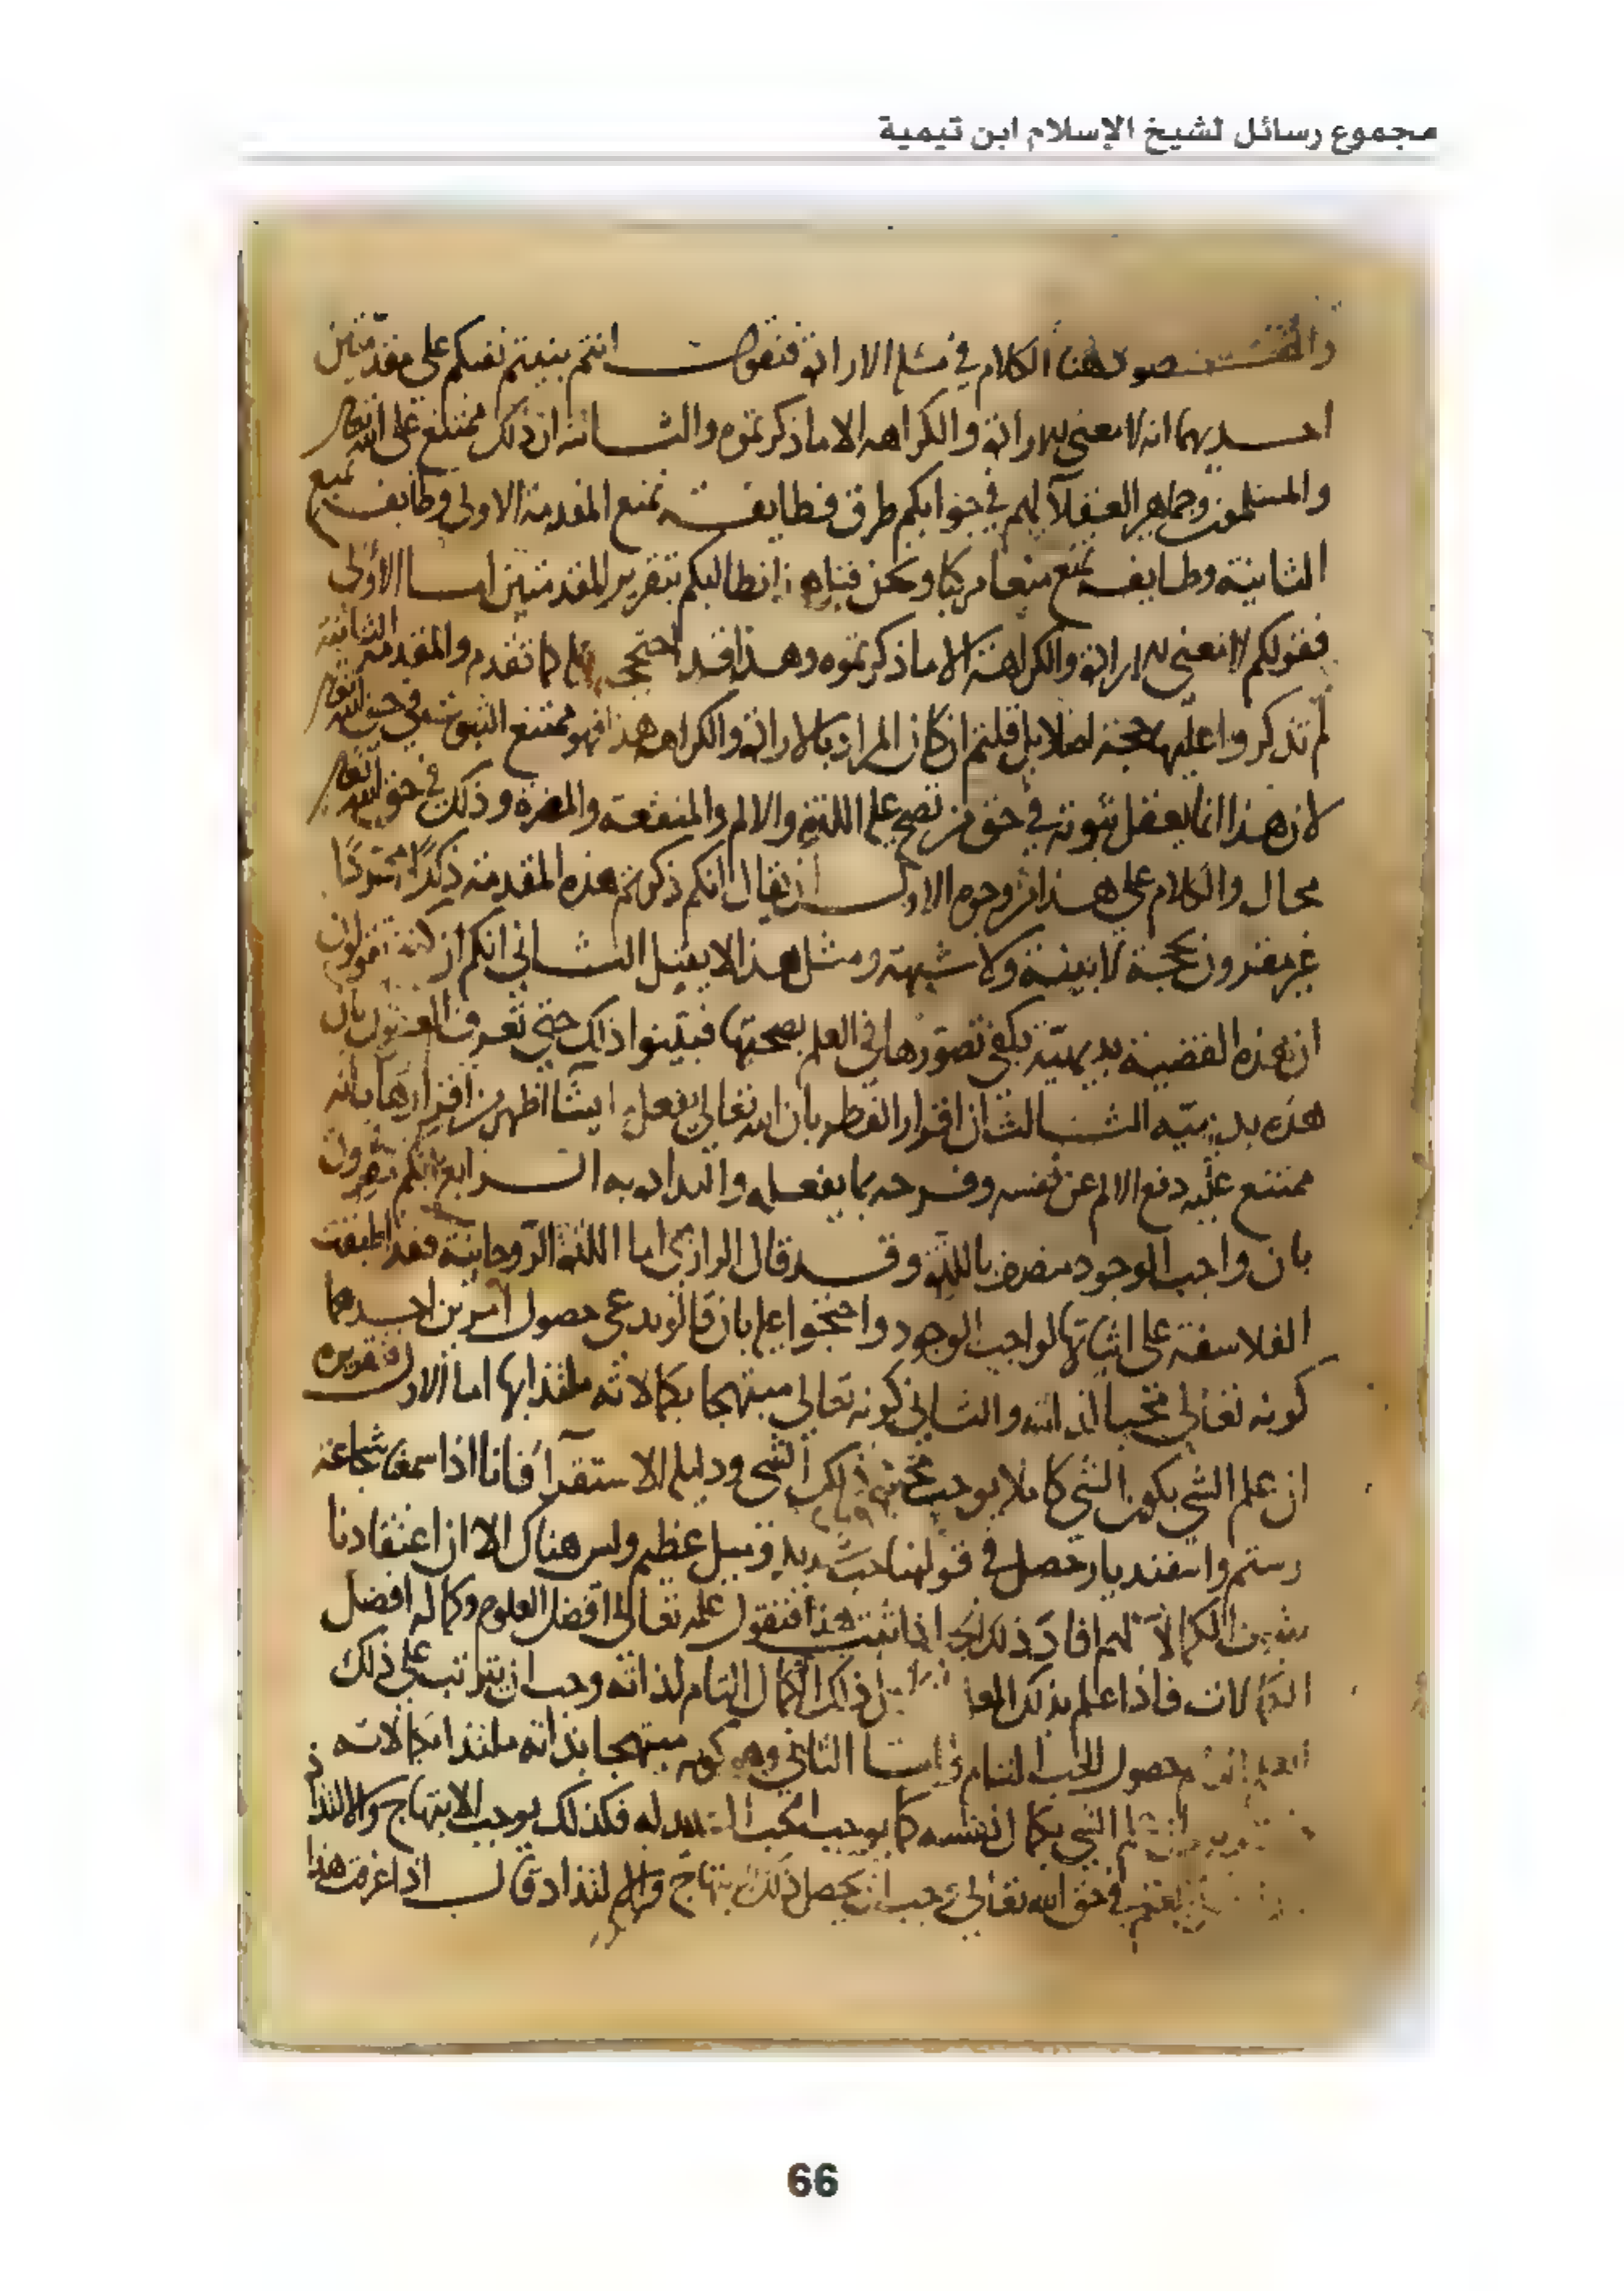 مجموع رسائل لشيخ الإسلام ابن تيمية
والمقصود هنا الكلام في مسلة الارادة فنقول انتم بنيتم نفيكم على مقدمتين
احديهما انه لا معنى للارادة والكراهه الا ما ذكرتموه والثانية ان ذلك ممتنع على الله تعالى
والمسلمون وجماهير العقلآ لهم في جوابكم طرق فطايفة تمنع المقدمة الاولى وطايفة تمنع
الثانية وطايفة تمنع منعا مركبا ونحن نطالبكم بتقرير المقدمتين اما الأولى
فقولكم لا معنى للارادة والكراهة الا ما ذكرتموه وهذا قد احتج كما تقدم والمقدمة الثانية
لم تذكروا عليها حجة اصلا بل قلتم ان كان المراد بالارادة والكراهه هذا فهو ممتنع الثبوت في حق الله تعالى
لان هذا انما يعقل ثبوته في حق من تصح عليه اللذة والالم والمنفعة والمضرة وذلك في حق الله تعالى
محال والكلام على هذا من وجوه الاول ان يقال انكم ذكرتم هذه المقدمة ذكرًا مجردًا
غير مقرون بحجة لا بينة ولا شبهة ومثل هذا لا يقبل الثاني انكم ان كنتم تقولون
ان هذه القضية بديهيّة يكفي تصوّرها في العلم بصحتها فبيّنوا ذلك حتى تعرف العقول بان
هذه بديهيّه الثالث ان اقرار الفطر بان الله تعالى يفعل ما يشآ اظهر من اقرارها بانه
ممتنع عليه دفع الالم عن نفسه وفرحه بما يفعله والتداده به الرابع انكم تقرون
بان واجب الوجود متصف باللذة وقد قال الرازي اما اللذة الروحانية فقد اطبقت
الفلاسفة على اثباتها لواجب الوجود واحتجوا عليه بان قالوا ندعي حصول امرين احدهما
كونه تعالى محبا لذاته والثاني كونه تعالى مبتهجا بكمالاته ملتذا بها اما الاول فتقريره
ان علم الشي بكون الشي كاملا يوجب محبة ذلك الشي ودليله الاستقرآ فانا اذا سمعنا شجاعة
رستم واسفنديار حصل في قولنا حب شديد وميل عظيم وليس هناك الا ان اعتقادنا
ثبوت الكمالات لهم افاد ذلك الحب اذا ثبت هذا فنقول علمه تعالى افضل العلوم وكماله افضل
الكمالات فاذا علم بذلك العلم ذلك الكمال التام لذاته وجب ان يترتب على ذلك
العلم حصول الحب التام واما الثاني وهو كونه مبتهجا بذاته ملتذا بكمالاته
الشي بكمال نفسه كما يوجب الحب الشديد له فكذلك يوجب الابتهاج والالتذاذ
في حق الله تعالى وجب ان يحصل ذلك الابتهاج والالتذاذ قال اذا عرفت هذا
66